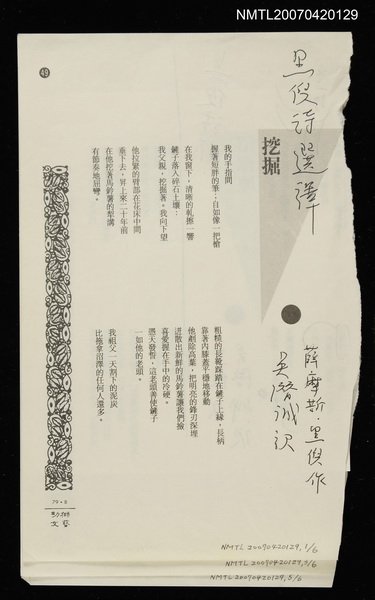 NMTL20070420129
黑倪詩選譯
49
挖掘
薛摩斯·黑倪作
吳潛誠譯
我的手指間
握著短胖的筆：自如像一把槍
在我窗下，清晰的軋擦一響
鏟子落入碎石土壤：
我父親，挖掘著。我向下望
他拉緊的臀部在花床中間
垂下去，昇上來二十年前
在他挖著馬鈴薯的犁溝
有節奏地屈彎。
粗糙的長靴踩踏在鏟子上緣，長柄
靠著內膝蓋平穩地移動
他剷除高葉，把明亮的鋒刃深埋
迸散出新鮮的馬鈴薯讓我們撿
喜愛握在手中的冷硬。
憑天發誓，這老頭善使鏟子
一如他的老頭。
我祖父一天割下的泥炭
比拖拿沼澤的任何人還多。
79·8
幼獅
文藝
NMTL20070420129,1/6
NMTL20070420129,3/6
NMTL20070420129,5/6